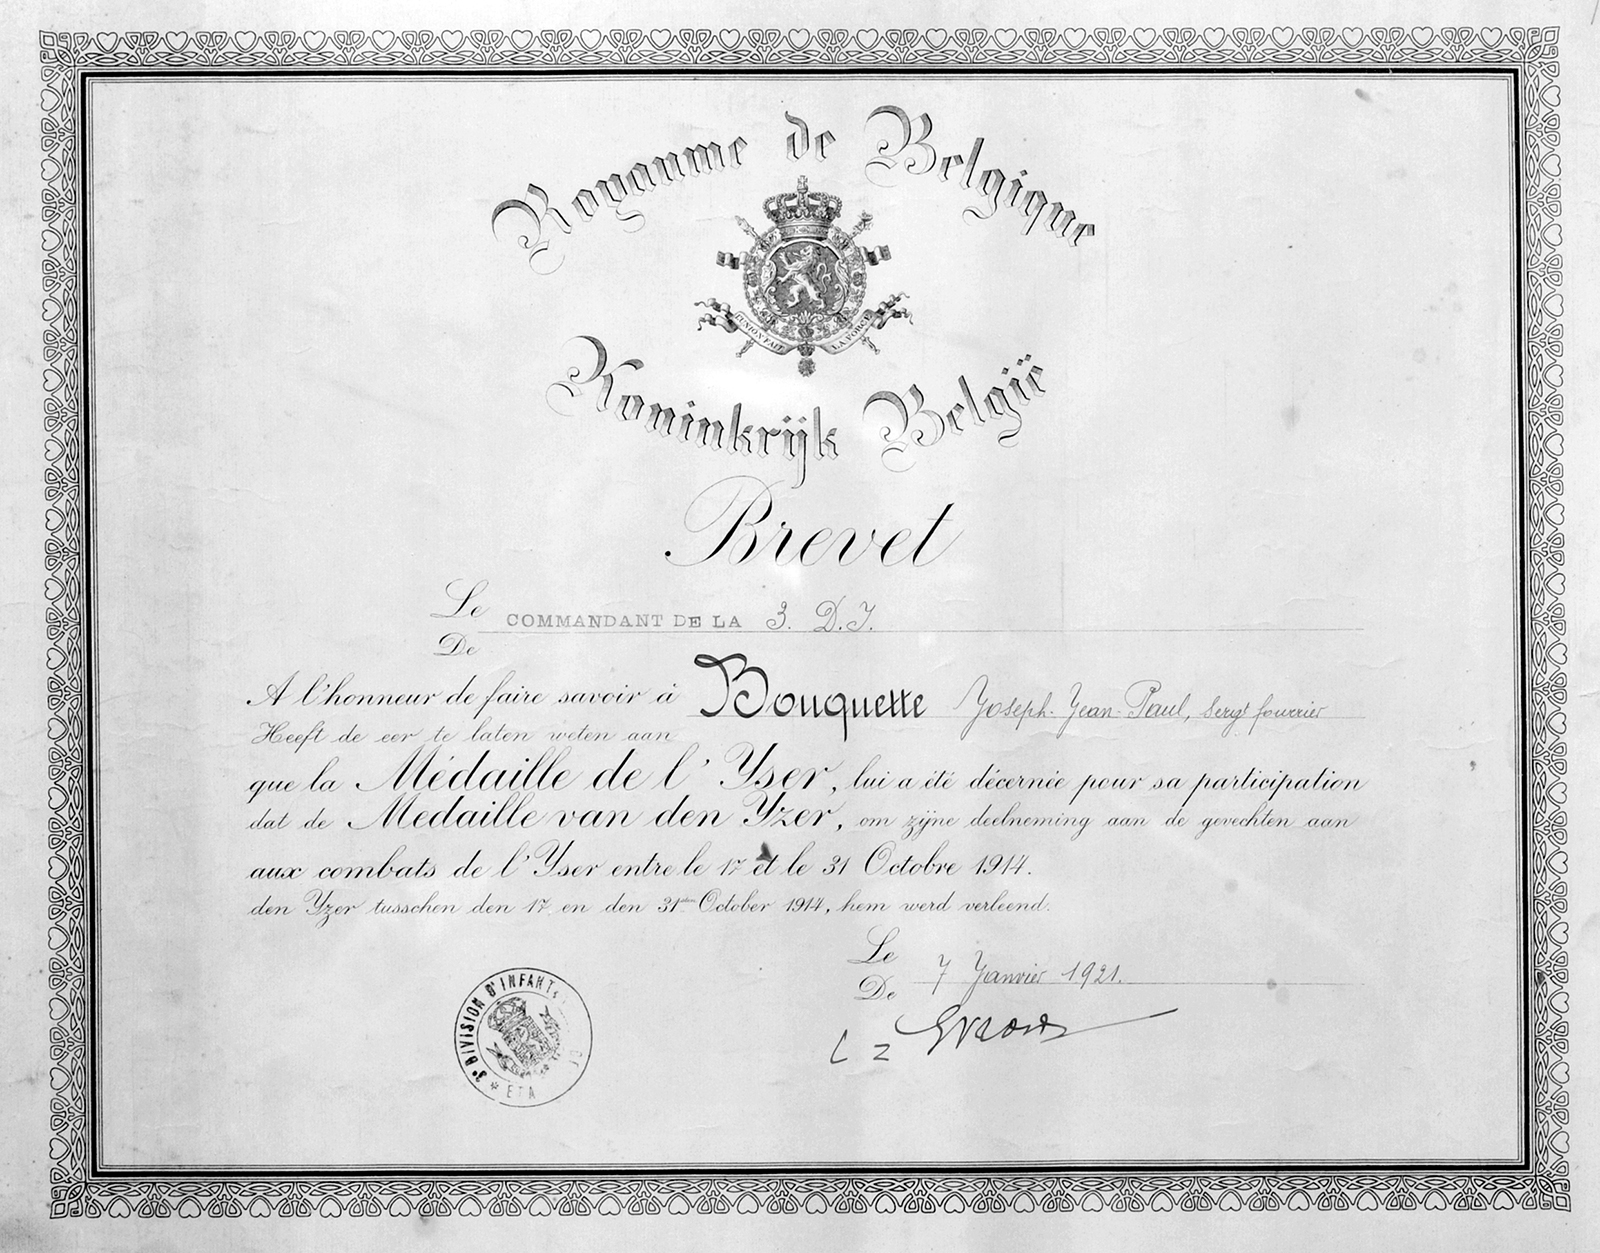 Royaume de Belgique
L'UNION FAIT LA FORCE
Koninkrijk België
Brevet
Le COMMANDANT DE LA 3. D.I.
De
A l'honneur de faire savoir à Bouquette Joseph-Jean-Paul, Sergt fourrier
Heeft de eer te laten weten aan
que la Médaille de l'Yser, lui a été décernée pour sa participation
dat de Medaille van den Yzer, om zijne deelneming aan de gevechten aan
aux combats de l'Yser entre le 17 et le 31 Octobre 1914.
den Yzer tusschen den 17 en den 31sten October 1914, hem werd verleend.
Le
De 7 Janvier 1921.
3e DIVISION D'INFANTE
* ETA